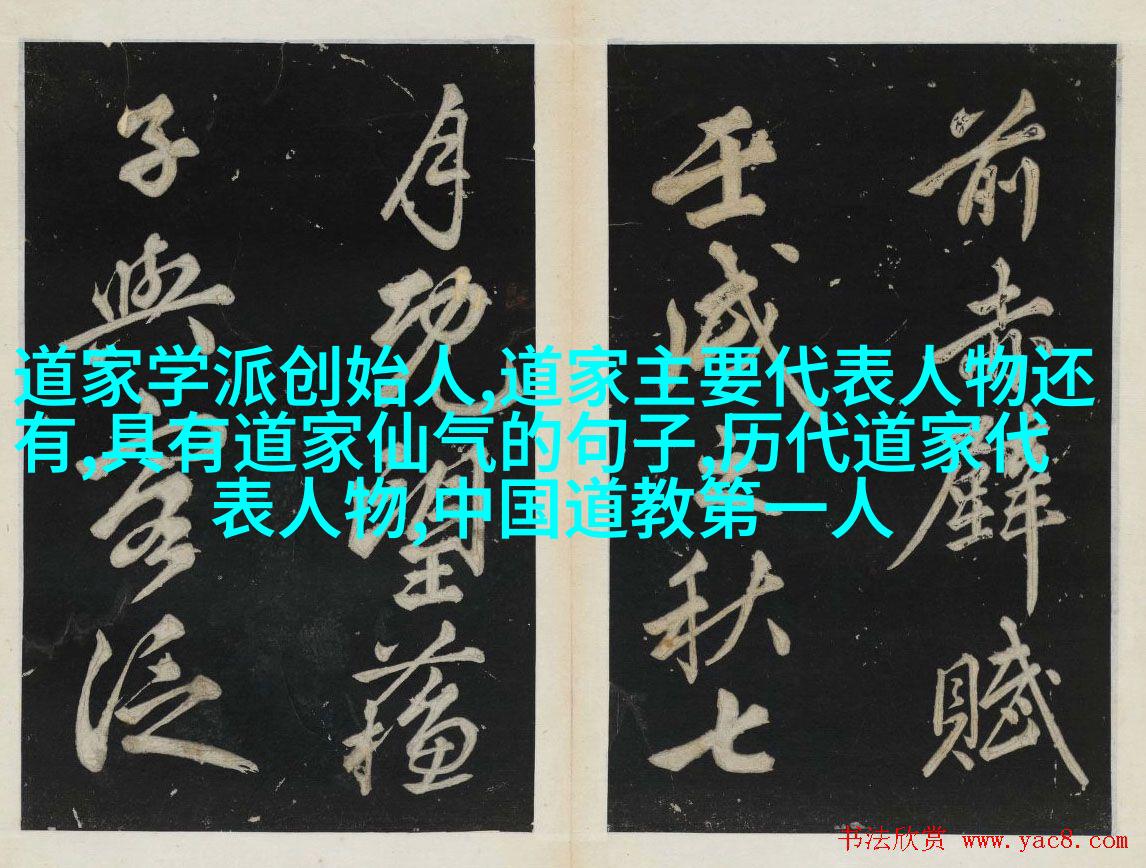 前赤壁賦
壬戌之秋七
月既望蘓
子與客泛
道家学派创始人,道家主要代表人物还
有,具有道家仙气的句子,历代道家代
表人物,中国道教第一人
书法欣赏 www.yac8.com